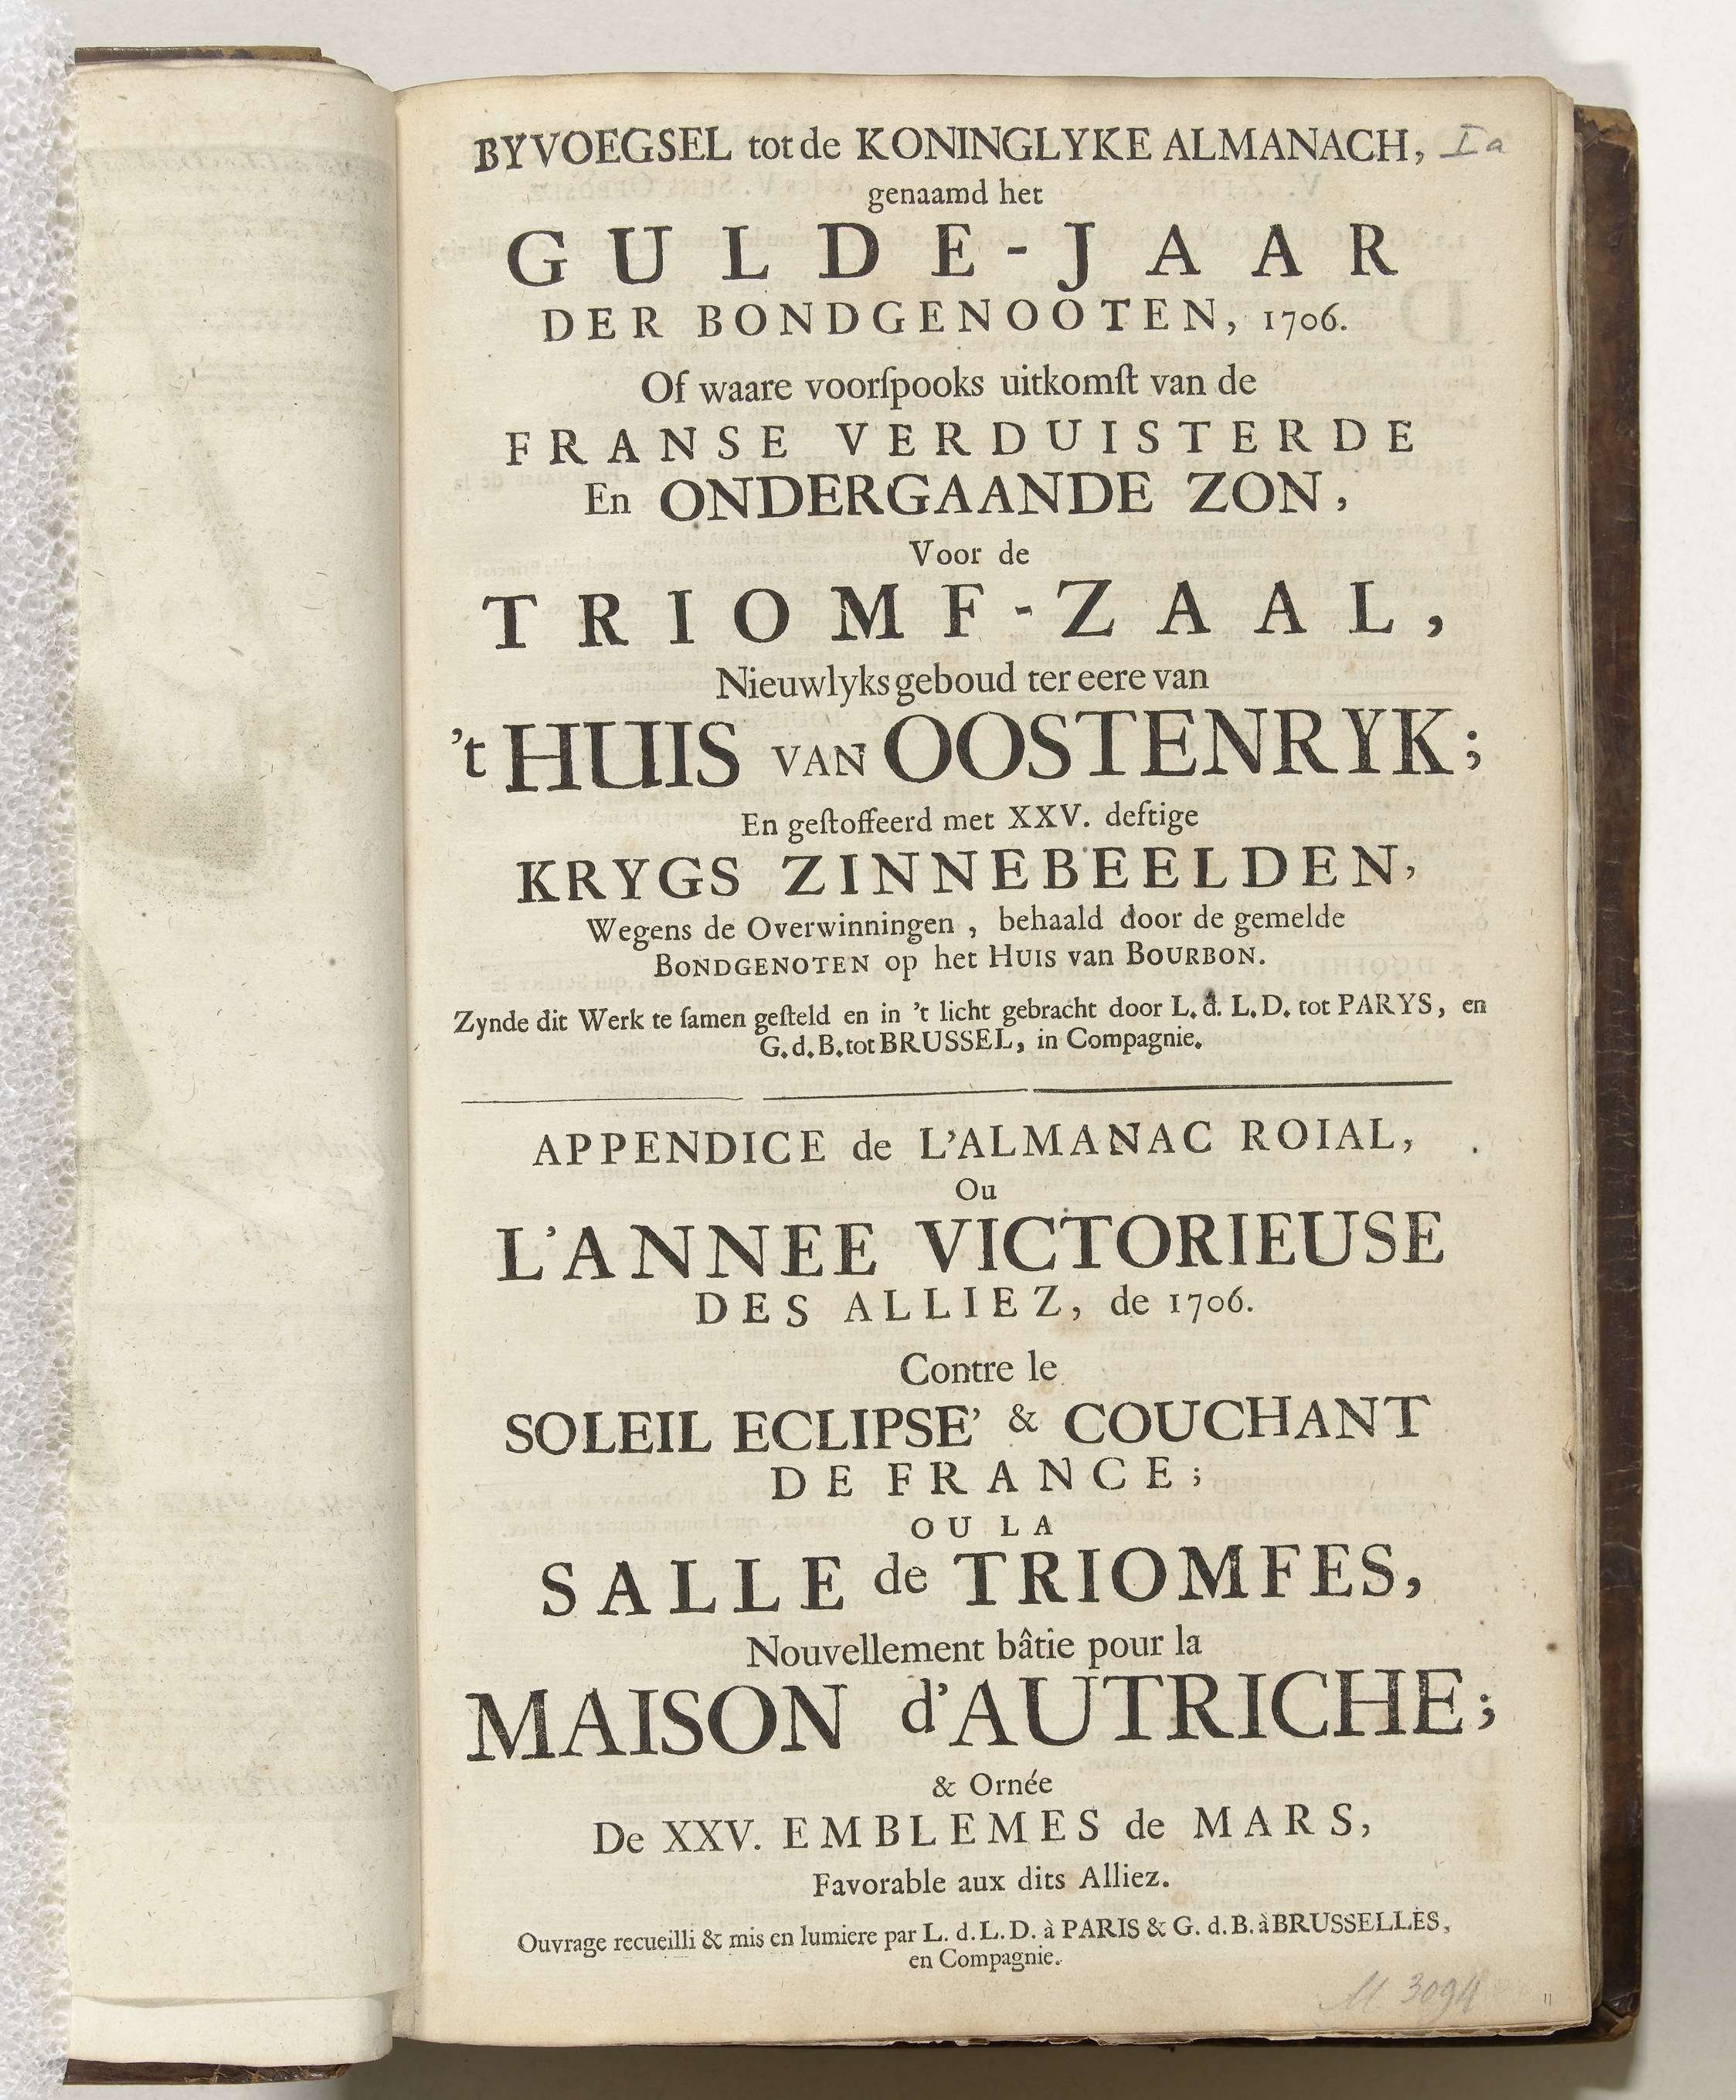 BYVOEGSEL tot de KONINGLYKE ALMANACH, Ia
genaamd het
GULDE-JAAR
DER BONDGENOOTEN, 1706.
Of waare voorſpooks uitkomſt van de
FRANSE VERDUISTERDE
En ONDERGAANDE ZON,
Voor de
TRIOMF-ZAAL,
Nieuwlyks geboud ter eere van
't HUIS VAN OOSTENRYK;
En geſtoffeerd met XXV. deftige
KRYGS ZINNEBEELDEN,
Wegens de Overwinningen, behaald door de gemelde
BONDGENOTEN op het HUIS van BOURBON.
Zynde dit Werk te ſamen geſteld en in 't licht gebracht door L. d. L. D. tot PARYS, en
G. d. B. tot BRUSSEL, in Compagnie.
APPENDICE de L'ALMANAC ROIAL,
Ou
L'ANNEE VICTORIEUSE
DES ALLIEZ, de 1706.
Contre le
SOLEIL ECLIPSE' & COUCHANT
DE FRANCE;
OU LA
SALLE de TRIOMFES,
Nouvellement bâtie pour la
MAISON d'AUTRICHE;
& Ornée
De XXV. EMBLEMES de MARS,
Favorable aux dits Alliez.
Ouvrage recueilli & mis en lumiere par L. d. L. D. à PARIS & G. d. B. à BRUSSELLES,
en Compagnie.
M 3094